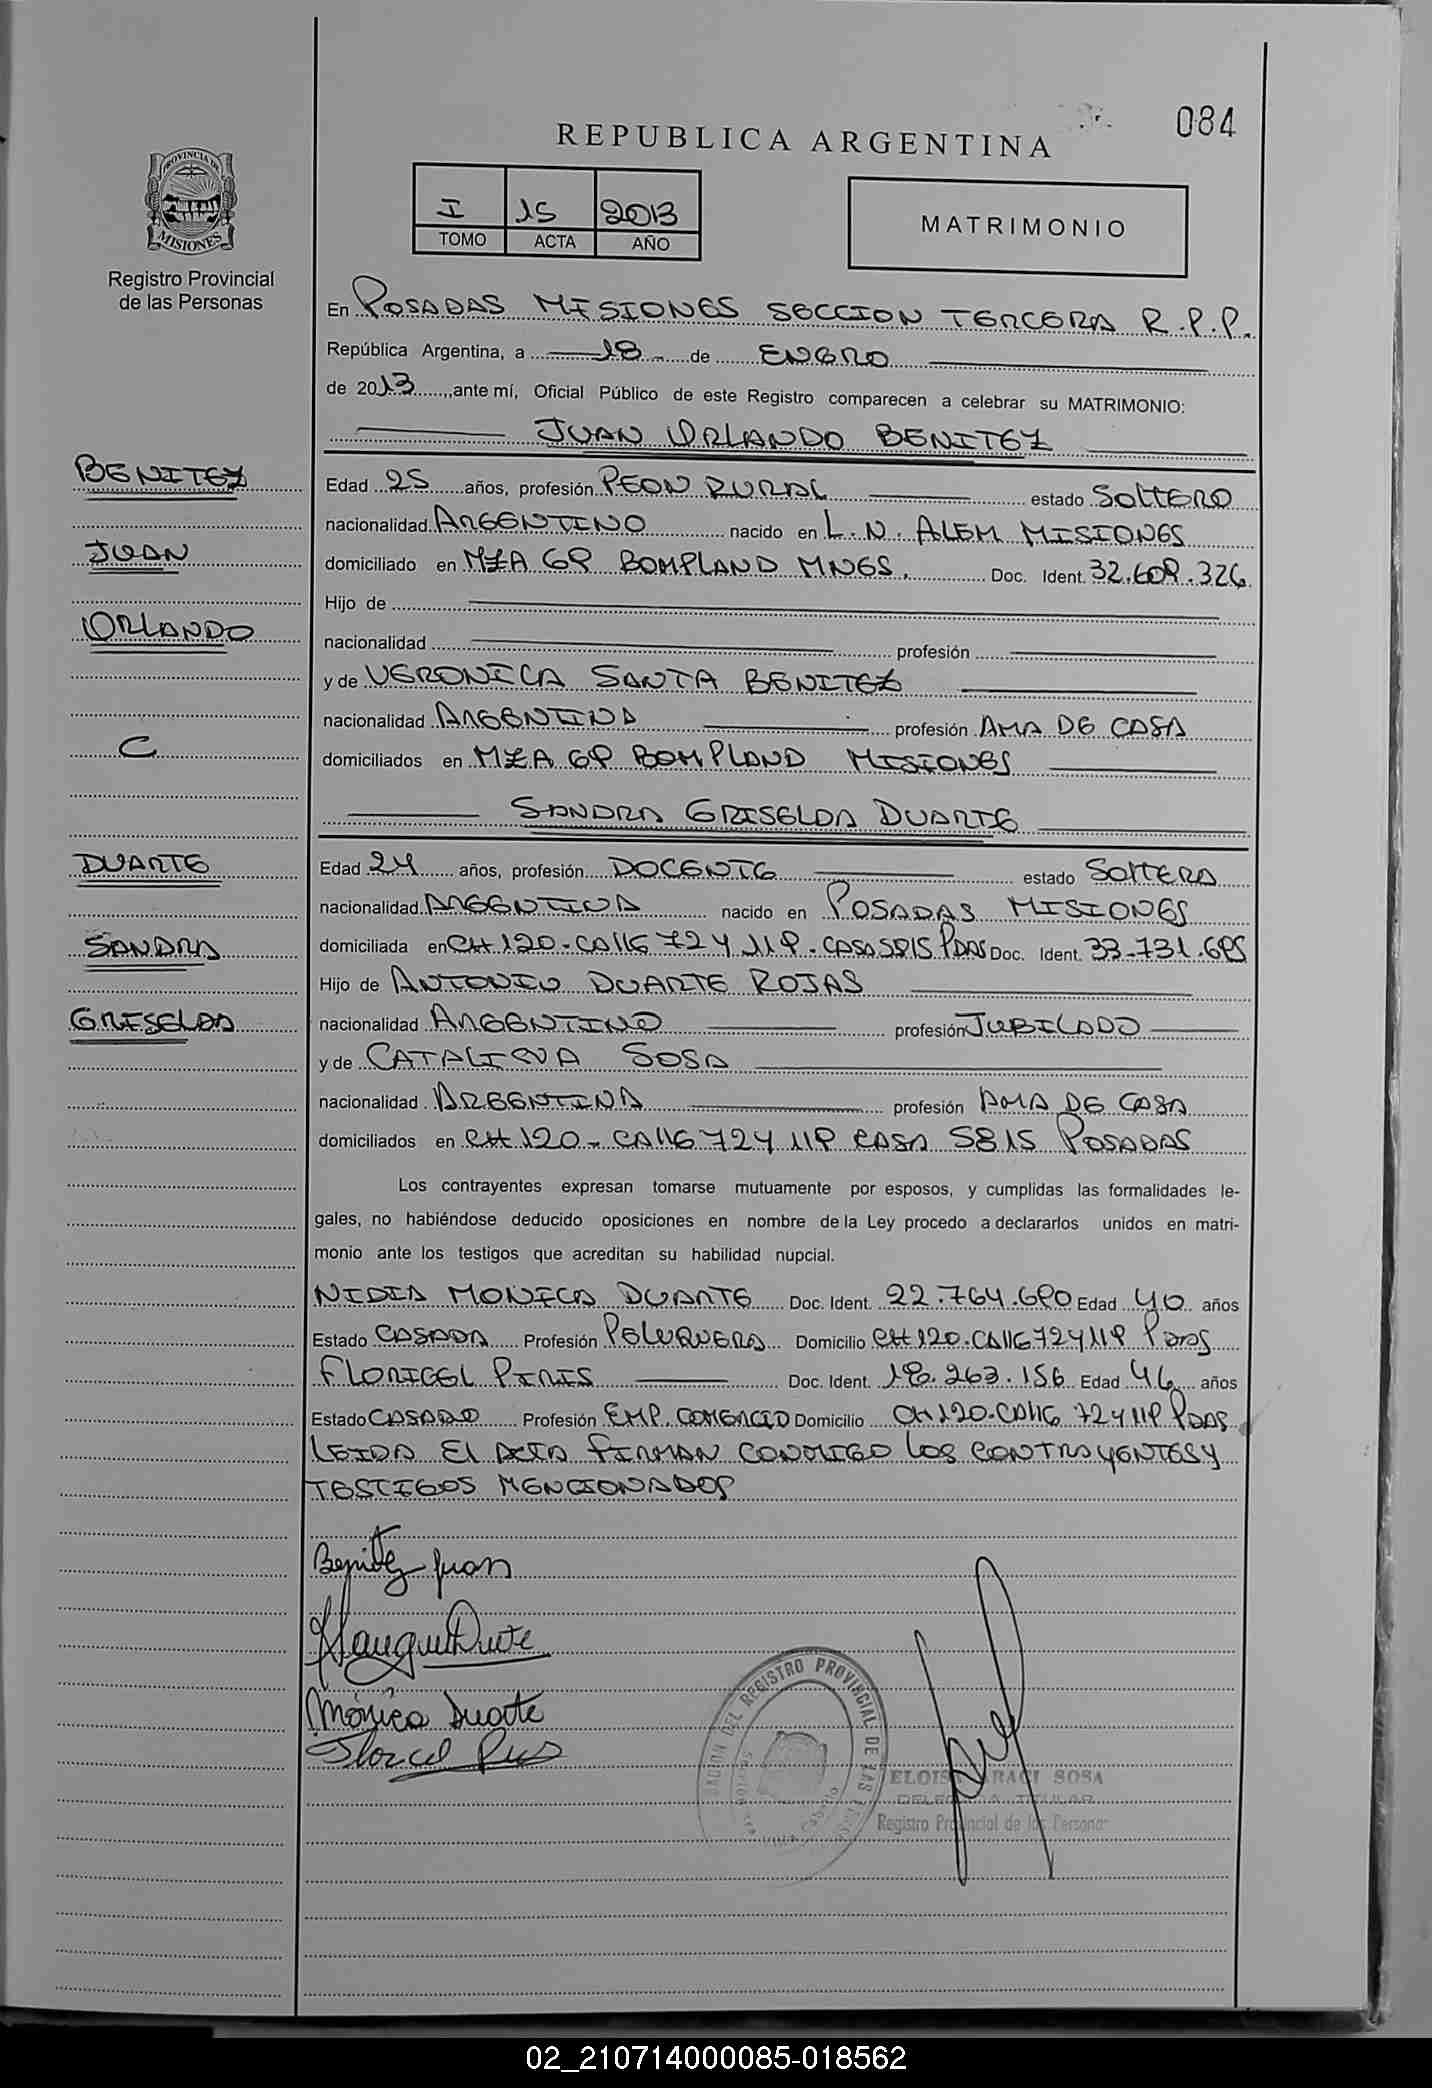 084
REPUBLICA ARGENTINA
I 15 2013
TOMO ACTA AÑO
MATRIMONIO
PROVINCIA DE
MISIONES
Registro Provincial
de las Personas
En POSADAS MISIONES SECCION TERCERA R.P.P.
República Argentina, a 18 de ENERO
de 2013, ante mí, Oficial Público de este Registro comparecen a celebrar su MATRIMONIO:
JUAN ORLANDO BENITEZ
BENITEZ
Edad 25 años, profesión PEON RURAL estado SOLTERO
nacionalidad ARGENTINO nacido en L.N. ALEM MISIONES
JUAN
domiciliado en MZA 69 BOMPLAND MNES. Doc. Ident. 32.609.326
Hijo de
ORLANDO
nacionalidad profesión
y de VERONICA SANTA BENITEZ
nacionalidad ARGENTINA profesión AMA DE CASA
C
domiciliados en MZA 69 BOMPLAND MISIONES
SANDRA GRISELDA DUARTE
DUARTE
Edad 24 años, profesión DOCENTE estado SOLTERA
nacionalidad ARGENTINA nacido en POSADAS MISIONES
SANDRA
domiciliada en CH 120-CALLE 72 Y 119-CASA 5815 PDAS Doc. Ident. 33.731.695
Hijo de ANTONIO DUARTE ROJAS
GRISELDA
nacionalidad ARGENTINO profesión JUBILADO
y de CATALINA SOSA
nacionalidad ARGENTINA profesión AMA DE CASA
domiciliados en CH 120-CALLE 72 Y 119 CASA 5815 POSADAS
Los contrayentes expresan tomarse mutuamente por esposos, y cumplidas las formalidades le-
gales, no habiéndose deducido oposiciones en nombre de la Ley procedo a declararlos unidos en matri-
monio ante los testigos que acreditan su habilidad nupcial.
NIDIA MONICA DUARTE Doc. Ident. 22.764.690 Edad 40 años
Estado CASADA Profesión PELUQUERA Domicilio CH 120-CALLE 72 Y 119 PDAS
FLORICEL PIRIS Doc. Ident. 18.263.156 Edad 46 años
Estado CASADO Profesión EMP. COMERCIO Domicilio CH 120-CALLE 72 Y 119 PDAS
LEIDA EL ACTA FIRMAN CONMIGO LOS CONTRAYENTES Y
TESTIGOS MENCIONADOS
Benitez Juan
Duarte
Mónica Duarte
Floricel Piris
DEL REGISTRO PROVINCIAL DE LAS
SOSA
DELEGADA TITULAR
Registro Provincial de las Personas
02_210714000085-018562